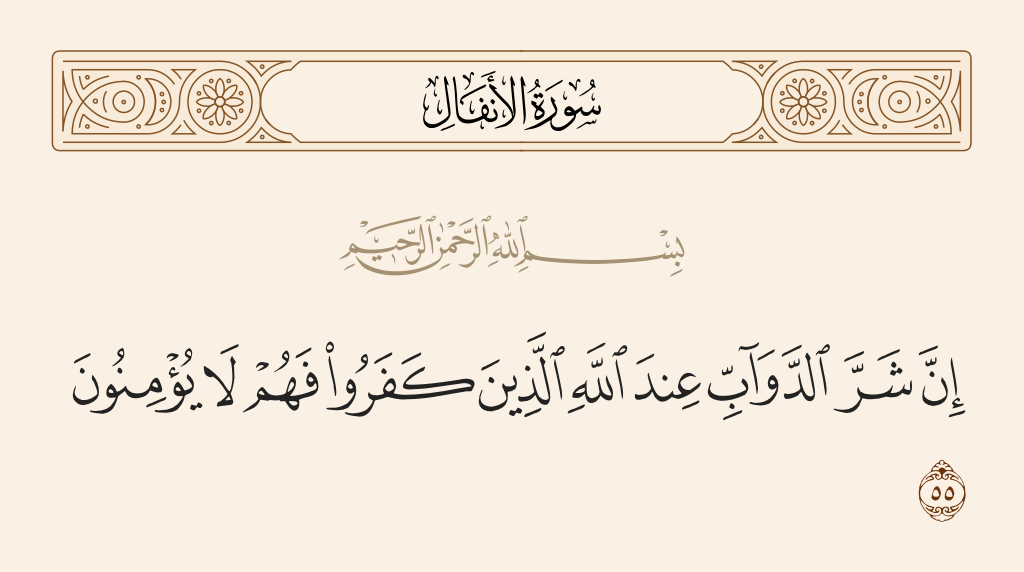 سُورَةُ الأَنفَالِ
بِسْمِ ٱللَّهِ ٱلرَّحْمَٰنِ ٱلرَّحِيمِ
إِنَّ شَرَّ ٱلدَّوَآبِّ عِندَ ٱللَّهِ ٱلَّذِينَ كَفَرُوا۟ فَهُمْ لَا يُؤْمِنُونَ
٥٥